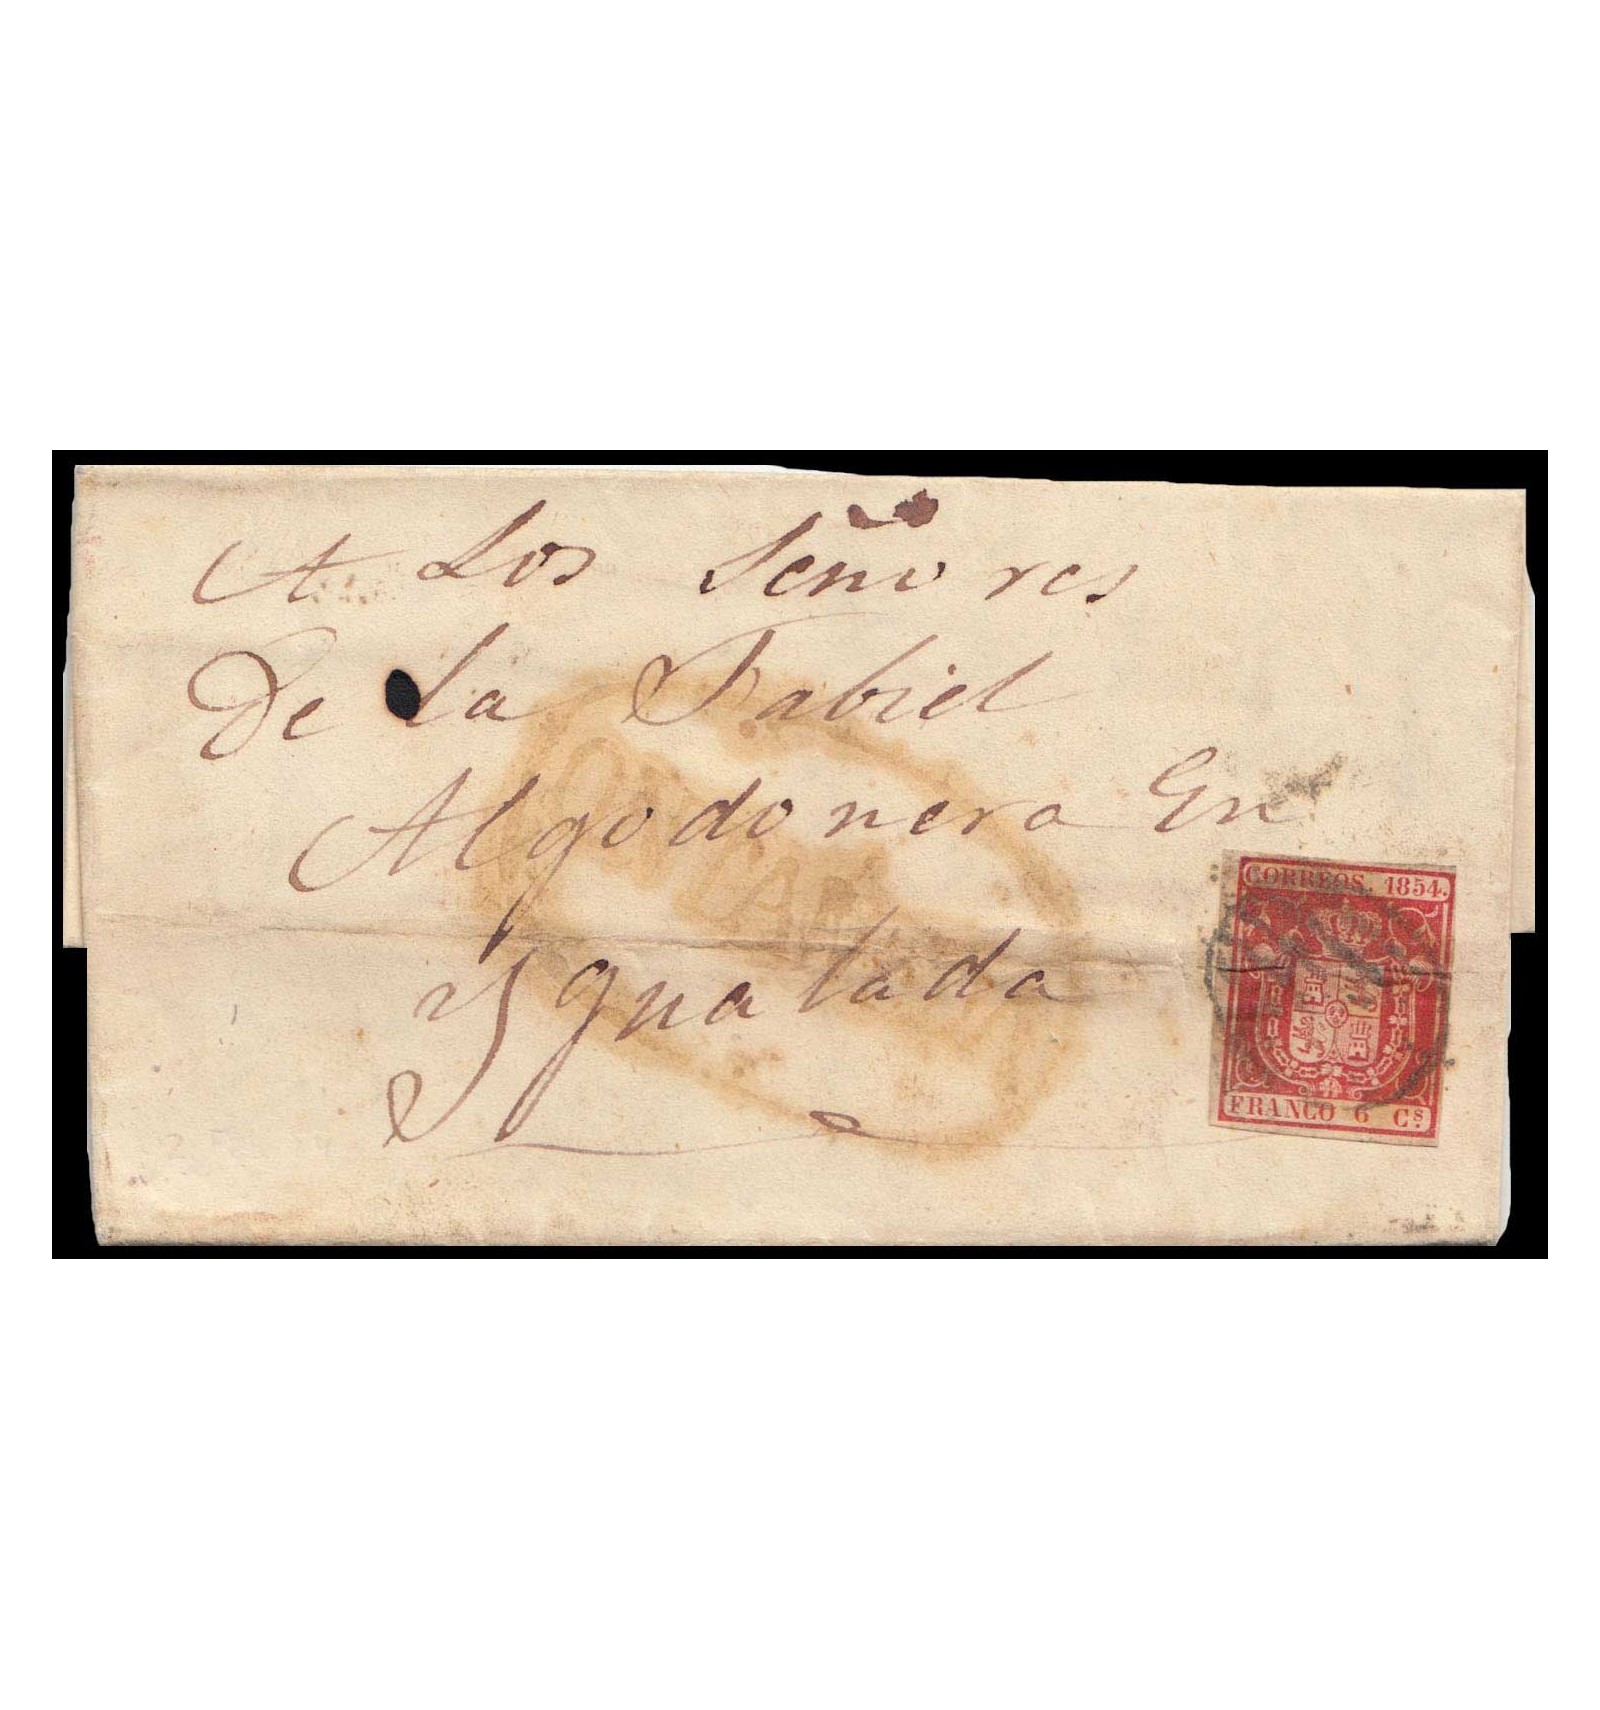 A Los Señores
De La Fabiel
Algodonera En
Ygualada
CORREOS. 1854.
FRANCO 6 Cs.